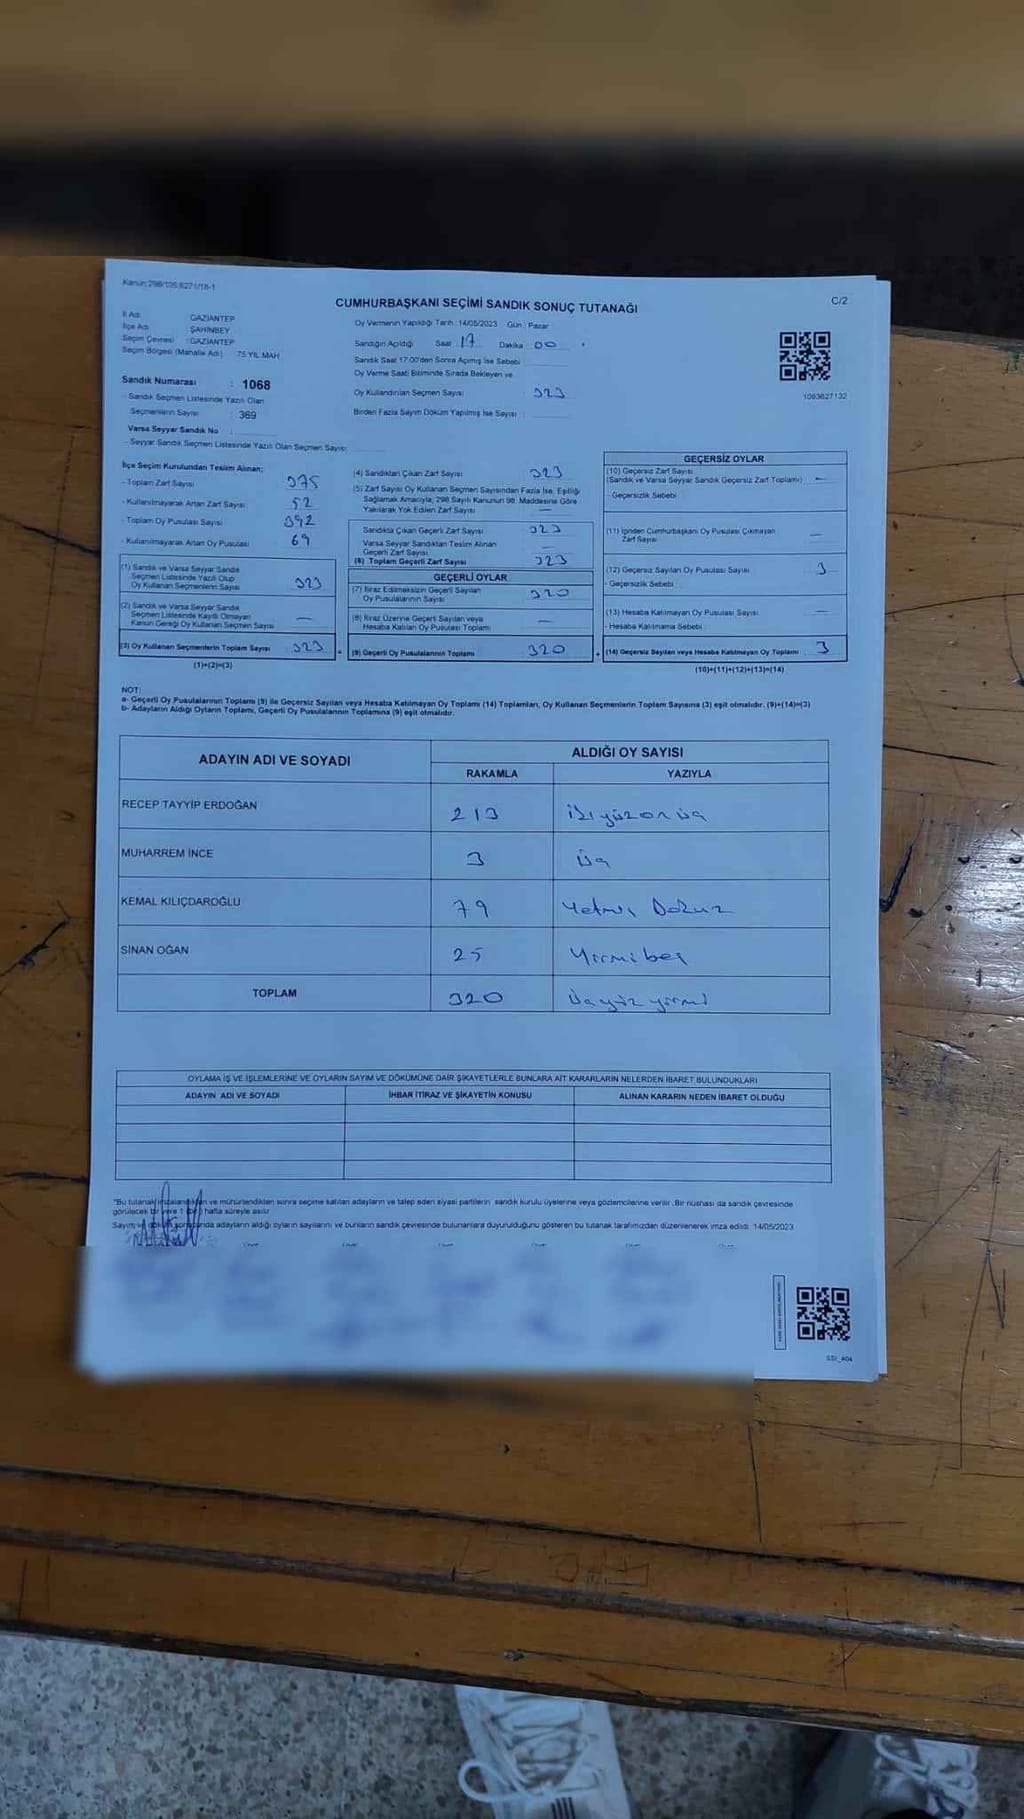 Kanun:298/105;6271/18-1
CUMHURBAŞKANI SEÇİMİ SANDIK SONUÇ TUTANAĞI
C/2
İl Adı : GAZİANTEP
İlçe Adı : ŞAHİNBEY
Seçim Çevresi : GAZİANTEP
Seçim Bölgesi (Mahalle Adı) : 75.YIL MAH.
Sandık Numarası : 1068
- Sandık Seçmen Listesinde Yazılı Olan
Seçmenlerin Sayısı : 369
Varsa Seyyar Sandık No :
- Seyyar Sandık Seçmen Listesinde Yazılı Olan Seçmen Sayısı:
Oy Vermenin Yapıldığı Tarih : 14/05/2023 Gün : Pazar
Sandığın Açıldığı Saat 17 Dakika 00
Sandık Saat 17.00'den Sonra Açılmış İse Sebebi :
Oy Verme Saati Bitiminde Sırada Bekleyen ve
Oy Kullandırılan Seçmen Sayısı : 323
Birden Fazla Sayım Döküm Yapılmış İse Sayısı :
1093627132
İlçe Seçim Kurulundan Teslim Alınan;
- Toplam Zarf Sayısı 375
- Kullanılmayarak Artan Zarf Sayısı 52
- Toplam Oy Pusulası Sayısı 392
- Kullanılmayarak Artan Oy Pusulası 69
(1) Sandık ve Varsa Seyyar Sandık
Seçmen Listesinde Yazılı Olup
Oy Kullanan Seçmenlerin Sayısı 323
(2) Sandık ve Varsa Seyyar Sandık
Seçmen Listesinde Kayıtlı Olmayan
Kanun Gereği Oy Kullanan Seçmen Sayısı —
(3) Oy Kullanan Seçmenlerin Toplam Sayısı 323
(1)+(2)=(3)
(4) Sandıktan Çıkan Zarf Sayısı 323
(5) Zarf Sayısı Oy Kullanan Seçmen Sayısından Fazla İse, Eşitliği
Sağlamak Amacıyla; 298 Sayılı Kanunun 98. Maddesine Göre
Yakılarak Yok Edilen Zarf Sayısı —
Sandıkta Çıkan Geçerli Zarf Sayısı 323
Varsa Seyyar Sandıktan Teslim Alınan
Geçerli Zarf Sayısı —
(6) Toplam Geçerli Zarf Sayısı 323
GEÇERLİ OYLAR
(7) İtiraz Edilmeksizin Geçerli Sayılan
Oy Pusulalarının Sayısı 320
(8) İtiraz Üzerine Geçerli Sayılan veya
Hesaba Katılan Oy Pusulası Toplamı —
(9) Geçerli Oy Pusulalarının Toplamı 320
GEÇERSİZ OYLAR
(10) Geçersiz Zarf Sayısı
(Sandık ve Varsa Seyyar Sandık Geçersiz Zarf Toplamı) —
- Geçersizlik Sebebi
(11) İçinden Cumhurbaşkanı Oy Pusulası Çıkmayan
Zarf Sayısı —
(12) Geçersiz Sayılan Oy Pusulası Sayısı 3
- Geçersizlik Sebebi
(13) Hesaba Katılmayan Oy Pusulası Sayısı —
- Hesaba Katılmama Sebebi :
(14) Geçersiz Sayılan veya Hesaba Katılmayan Oy Toplamı 3
(10)+(11)+(12)+(13)=(14)
NOT:
a- Geçerli Oy Pusulalarının Toplamı (9) ile Geçersiz Sayılan veya Hesaba Katılmayan Oy Toplamı (14) Toplamları, Oy Kullanan Seçmenlerin Toplam Sayısına (3) eşit olmalıdır. (9)+(14)=(3)
b- Adayların Aldığı Oyların Toplamı, Geçerli Oy Pusulalarının Toplamına (9) eşit olmalıdır.
ADAYIN ADI VE SOYADI
ALDIĞI OY SAYISI
RAKAMLA YAZIYLA
RECEP TAYYİP ERDOĞAN 213 ikiyüzonüç
MUHARREM İNCE 3 Üç
KEMAL KILIÇDAROĞLU 79 Yetmiş Dokuz
SİNAN OĞAN 25 Yirmi beş
TOPLAM 320 Üçyüz yirmi
OYLAMA İŞ VE İŞLEMLERİNE VE OYLARIN SAYIM VE DÖKÜMÜNE DAİR ŞİKAYETLERLE BUNLARA AİT KARARLARIN NELERDEN İBARET BULUNDUKLARI
ADAYIN ADI VE SOYADI İHBAR İTİRAZ VE ŞİKAYETİN KONUSU ALINAN KARARIN NEDEN İBARET OLDUĞU
*Bu tutanak imzalandıktan ve mühürlendikten sonra seçime katılan adayların ve talep eden siyasi partilerin sandık kurulu üyelerine veya gözlemcilerine verilir. Bir nüshası da sandık çevresinde
görülecek bir yere 1 (bir) hafta süreyle asılır.
Sayım ve döküm sonunda adayların aldığı oyların sayılarını ve bunların sandık çevresinde bulunanlara duyurulduğunu gösteren bu tutanak tarafımızdan düzenlenerek imza edildi. 14/05/2023
SSI_404